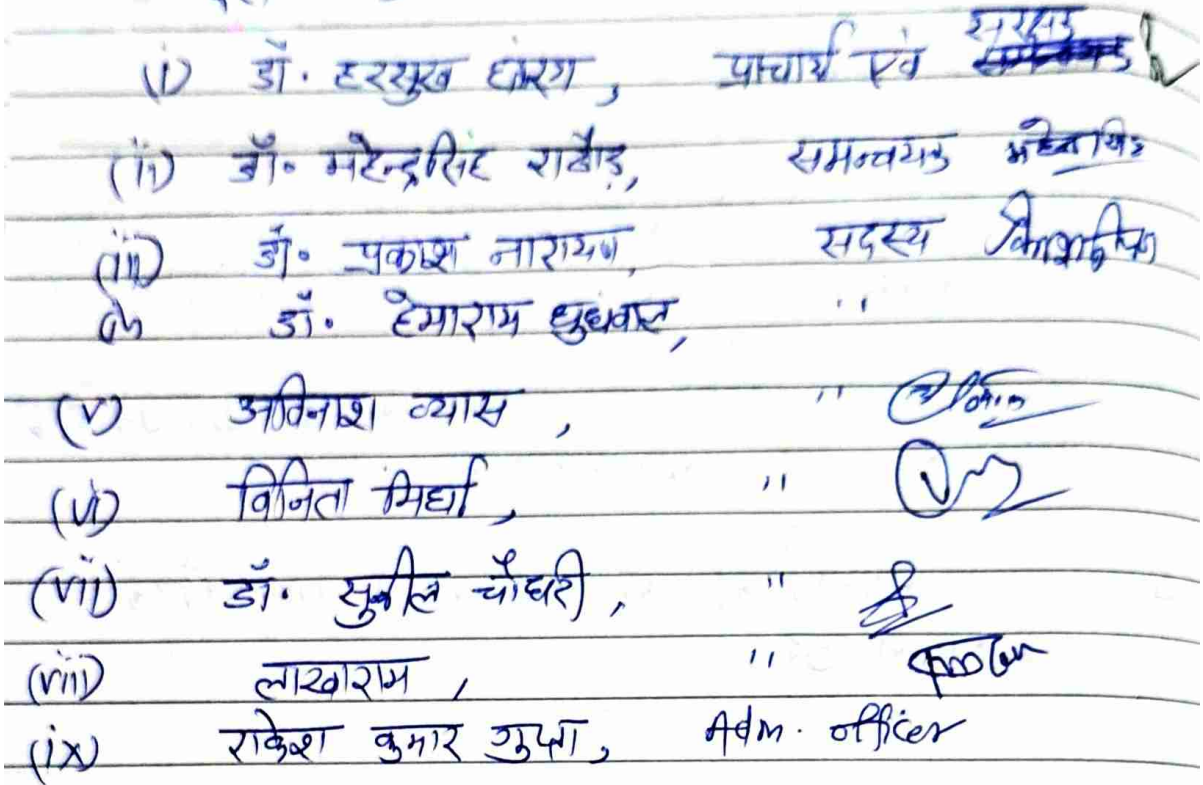 (i) डॉ. हरसुख छरंग, प्राचार्य एवं संरक्षक
(ii) डॉ. महेन्द्रसिंह राठौड़, समन्वयक
(iii) डॉ. प्रकाश नारायण, सदस्य
(iv) डॉ. हेमाराम धुंधवाल, "
(v) अविनाश व्यास, "
(vi) विनिता मिर्धा, "
(vii) डॉ. सुनील चौधरी, "
(viii) लाखाराम, "
(ix) राकेश कुमार गुप्ता, Adm. officer